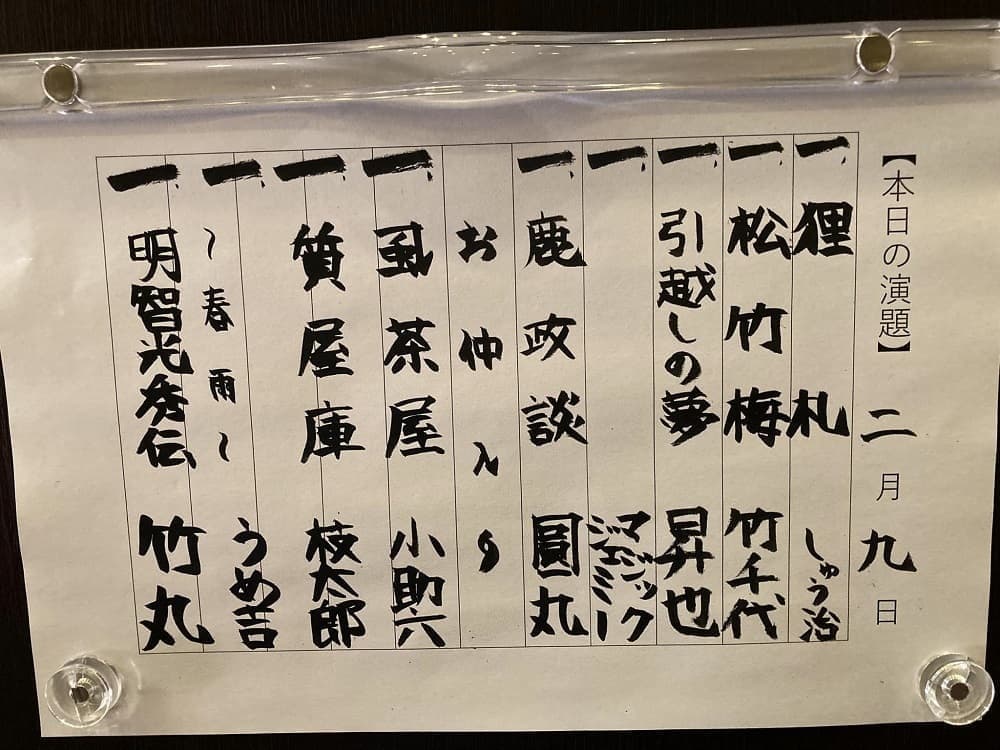 【本日の演題】 二月九日
一、狸札 しゅう治
一、松竹梅 竹千代
一、引越しの夢 昇也
一、マジックジェミー
一、鹿政談 圓丸
お仲入り
一、虱茶屋 小助六
一、質屋庫 枝太郎
一、~春雨~ うめ吉
一、明智光秀伝 竹丸